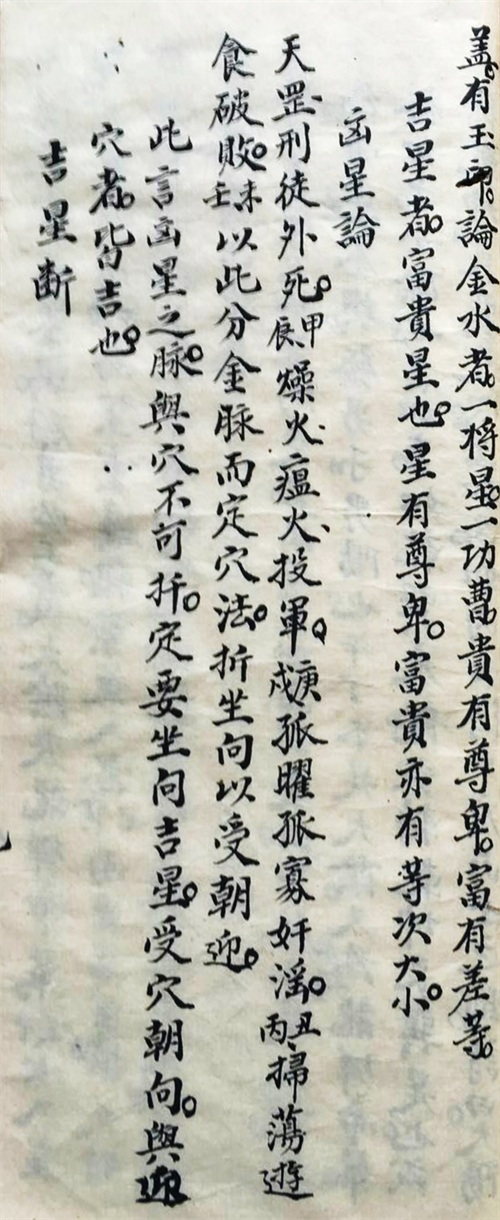 盖有玉印論金水者一将星一功曹貴有尊卑富有差等
吉星者富貴星也星有尊卑富貴亦有等次大小
凶星論
天罡刑徒外死甲辰燥火瘟火投軍庚戌孤曜孤寡奸淫丑丙掃蕩遊
食破敗未壬以此分金脉而定穴法折坐向以受朝迎
此言凶星之脉與穴不可扦定要坐向吉星受穴朝向與迎
穴者皆吉也
吉星断